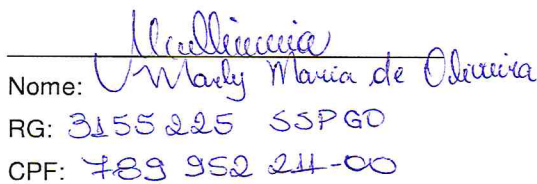 Nome: Marly Maria de Oliveira
RG: 3155225 SSPGO
CPF: 789 952 211-00